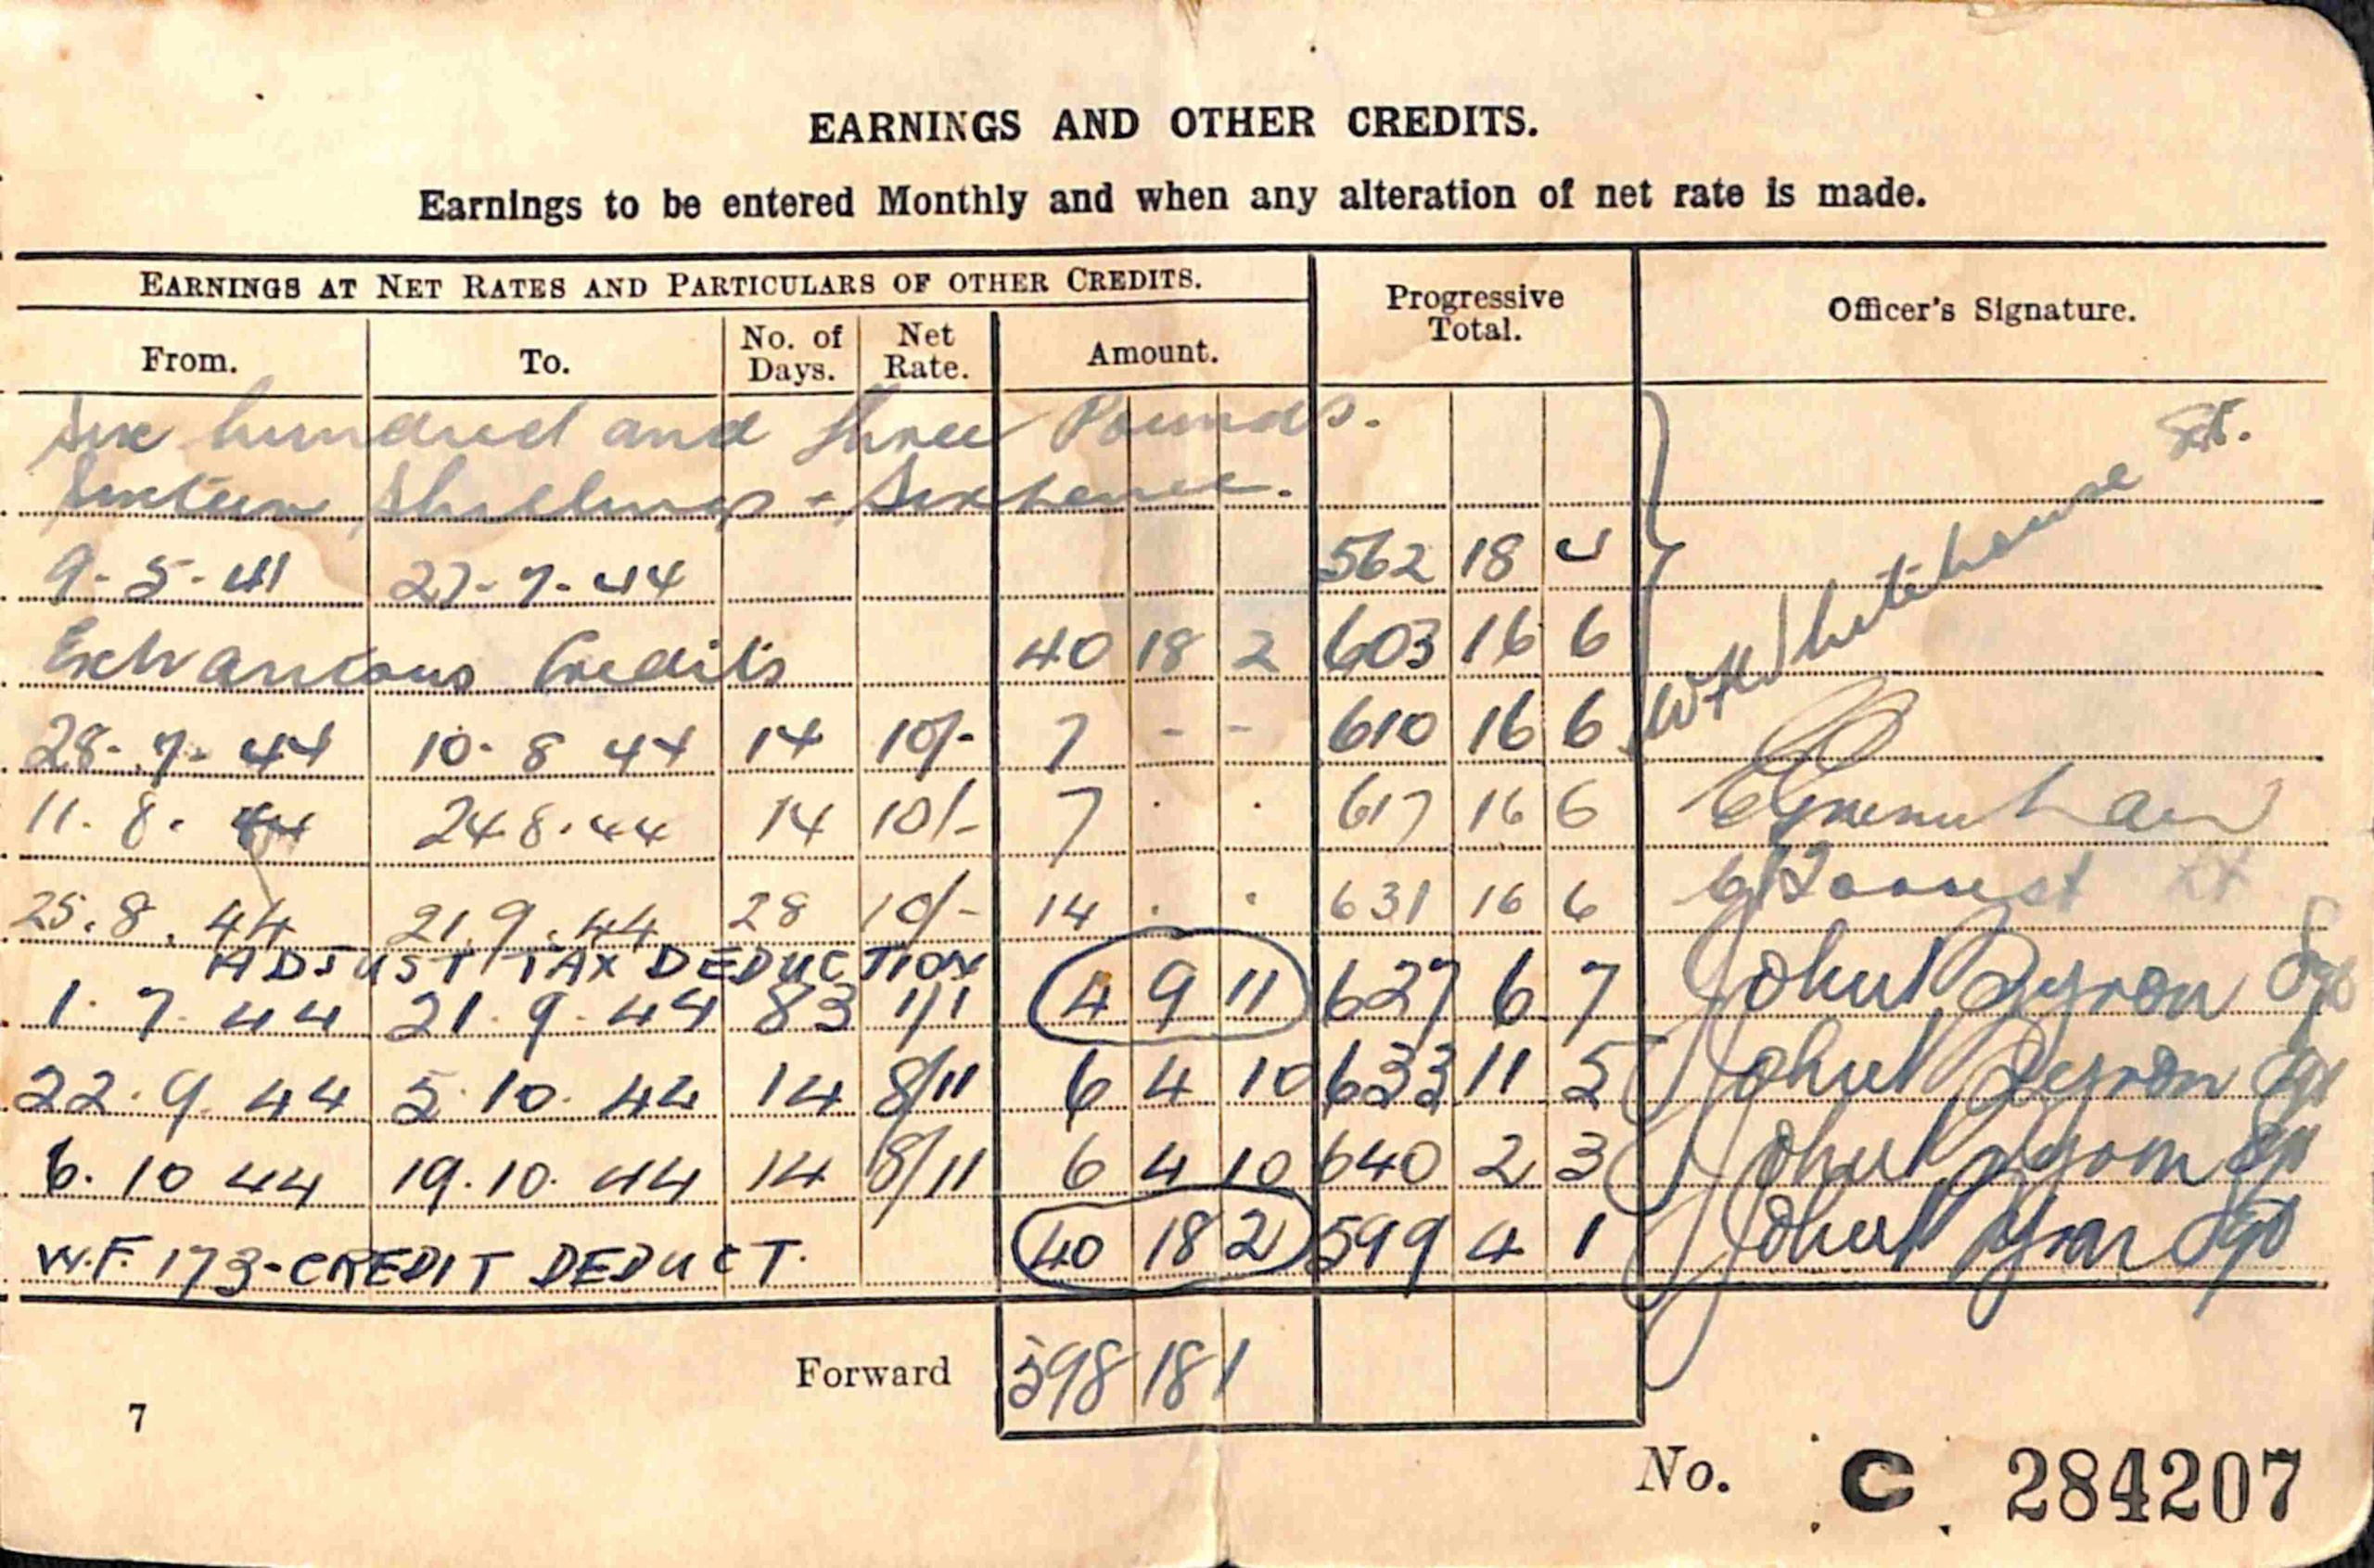 EARNINGS AND OTHER CREDITS.
Earnings to be entered Monthly and when any alteration of net rate is made.
EARNINGS AT NET RATES AND PARTICULARS OF OTHER CREDITS. Progressive Total. Officer's Signature.
From. To. No. of Days. Net Rate. Amount.
Six hundred and three Pounds.
Sixteen Shillings - Sixpence. Sgt.
9-5-41 27-7-44 562 18 4 Whitehouse
Extraneous Credits 40 18 2 603 16 6
28-7-44 10-8 44 14 10/- 7 - - 610 16 6
11.8.44 24 8.44 14 10/- 7 . . 617 16 6
25.8.44 21.9.44 28 10/- 14 . . 631 16 6
ADJUST TAX DEDUCTION
1.7.44 21.9.44 83 1/1 4 9 11 627 6 7 John
22.9.44 5.10.44 14 8/11 6 4 10 633 11 5 John
6.10 44 19.10.44 14 8/11 6 4 10 640 2 3 John
W.F. 173-CREDIT DEDUCT. 40 18 2 599 4 1 John
Forward 598 18 1
7
No. C 284207